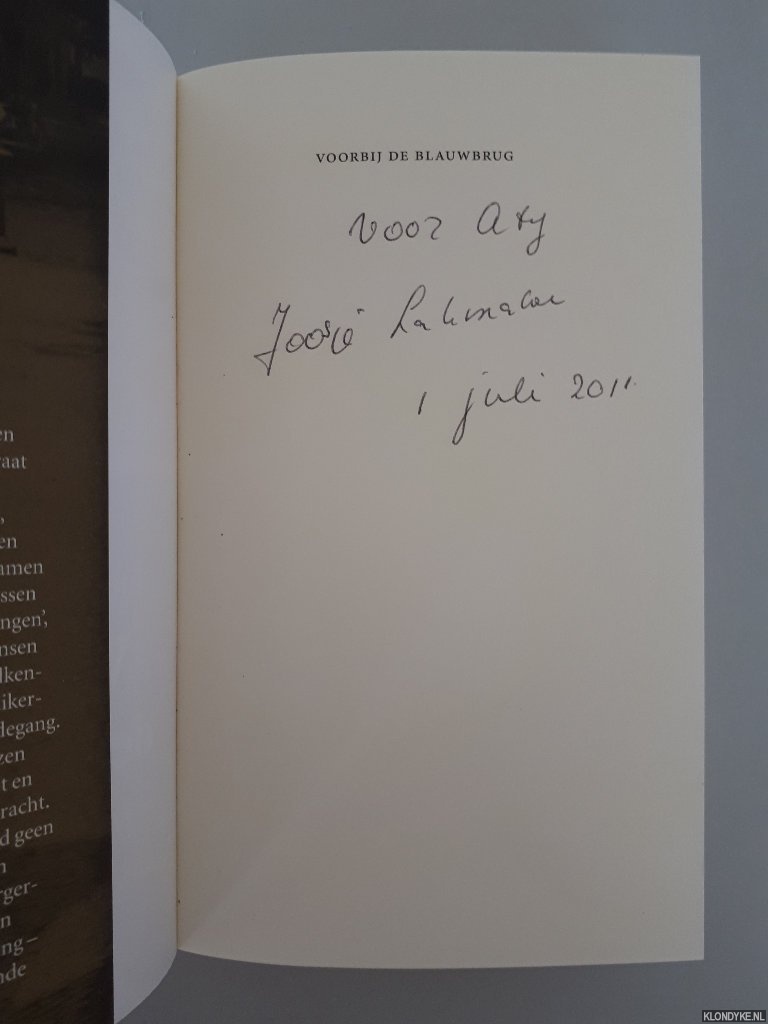 VOORBIJ DE BLAUWBRUG
voor Aty
Joosje Lakmaker
1 juli 2011
en
aat
,
en
amen
ssen
ngen',
nsen
lken-
iker-
degang.
zen
t en
racht.
d geen
n
rger-
n
ng–
nde
KLONDYKE.NL